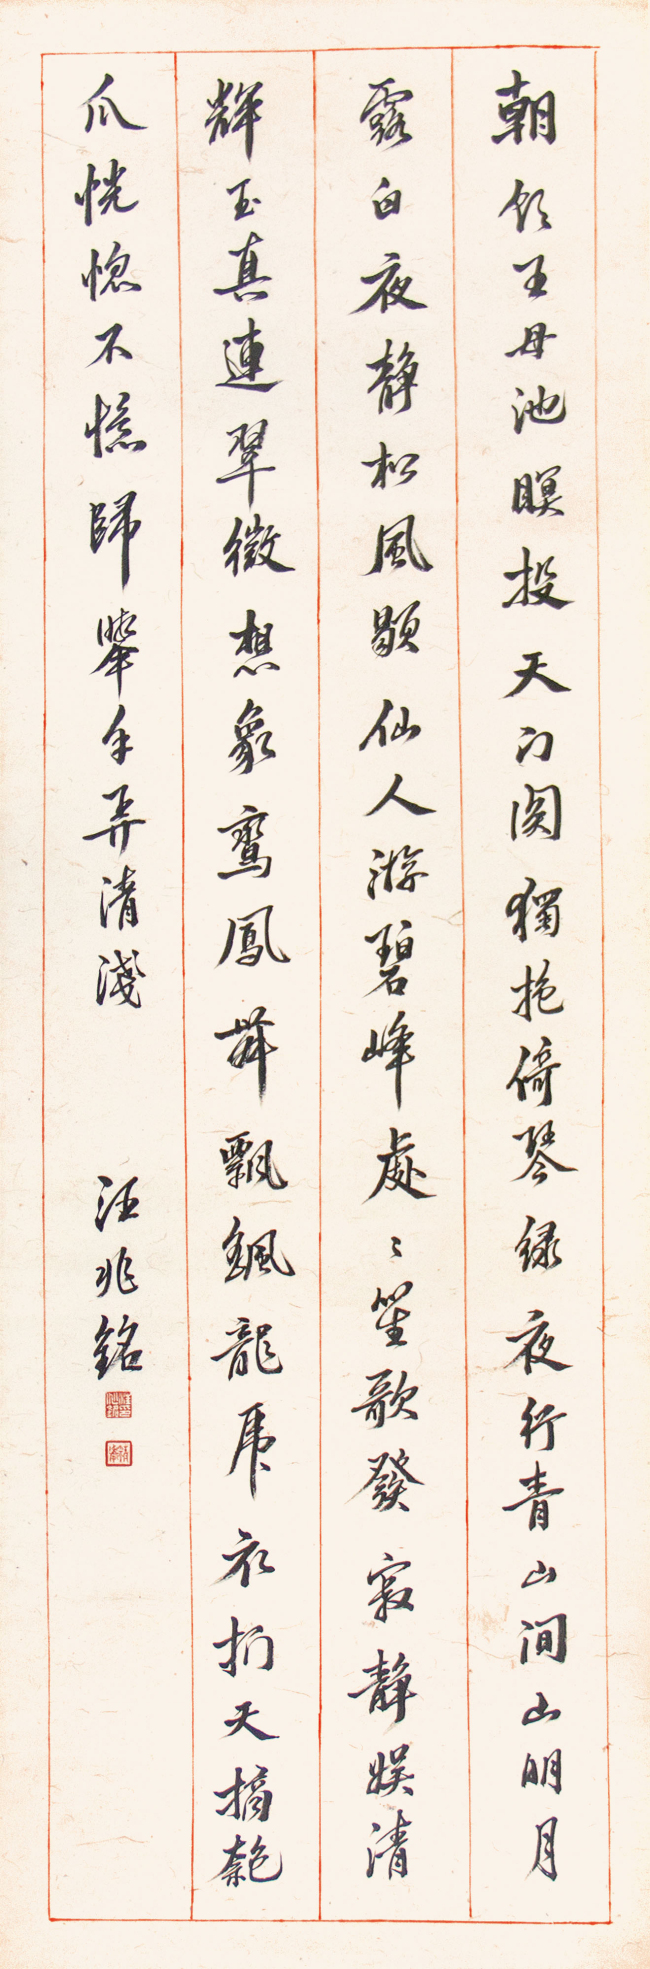 朝飲王母池瞑投天門闕獨抱倚琴綠夜行青山間山明月
露白夜静松風歇仙人游碧峰處〻笙歌發寂静娱清
輝玉真連翠微想象鸞鳳舞飄颻龍虎衣捫天摘匏
瓜恍惚不憶歸舉手弄清淺
汪兆銘